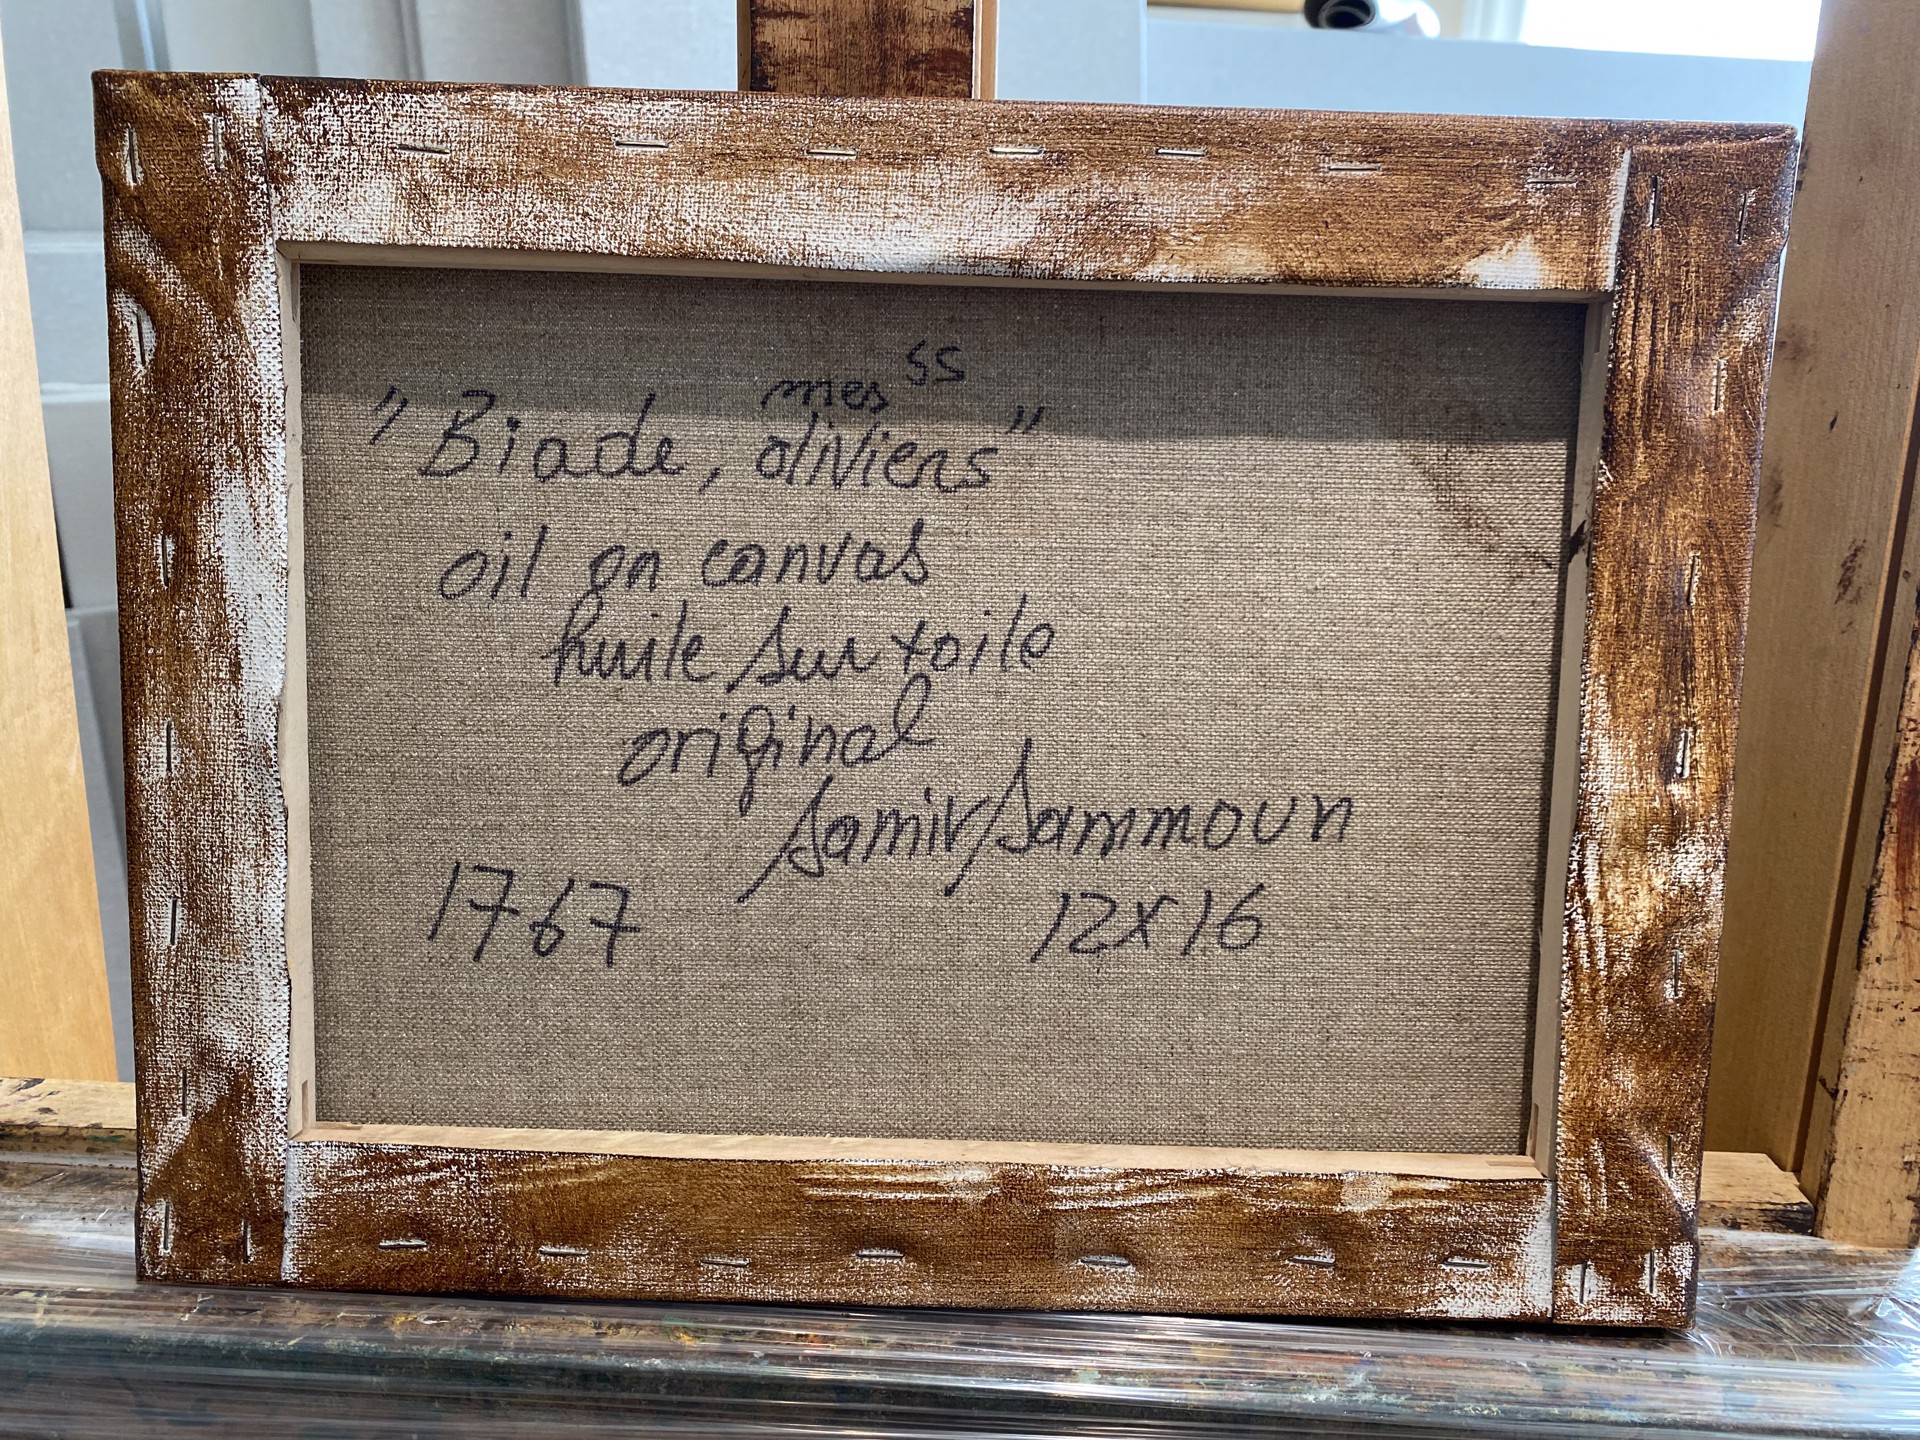 mes SS
"Biade, oliviers"
oil on canvas
huile sur toile
original
Samir Sammoun
1767
12x16